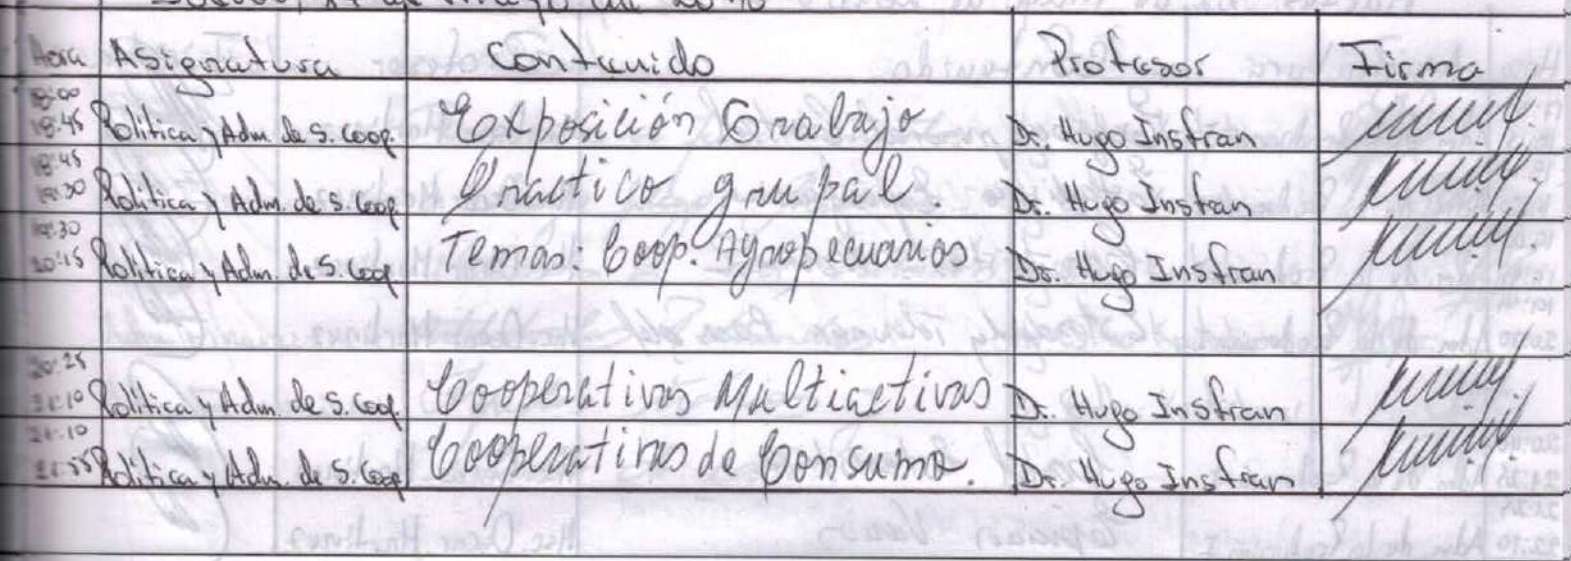 Hora Asignatura Contenido Profesor Firma
18:00
18:45 Política y Adm. de S. Coop. Exposición Trabajo Dr. Hugo Insfran
18:45
19:30 Política y Adm. de S. Coop. Práctico grupal. Dr. Hugo Insfran
19:30
20:15 Política y Adm. de S. Coop. Temas: Coop. Agropecuarios Dr. Hugo Insfran
20:25
21:10 Política y Adm. de S. Coop. Cooperativas Multiactivas Dr. Hugo Insfran
21:10
21:55 Política y Adm. de S. Coop. Cooperativas de Consumo. Dr. Hugo Insfran